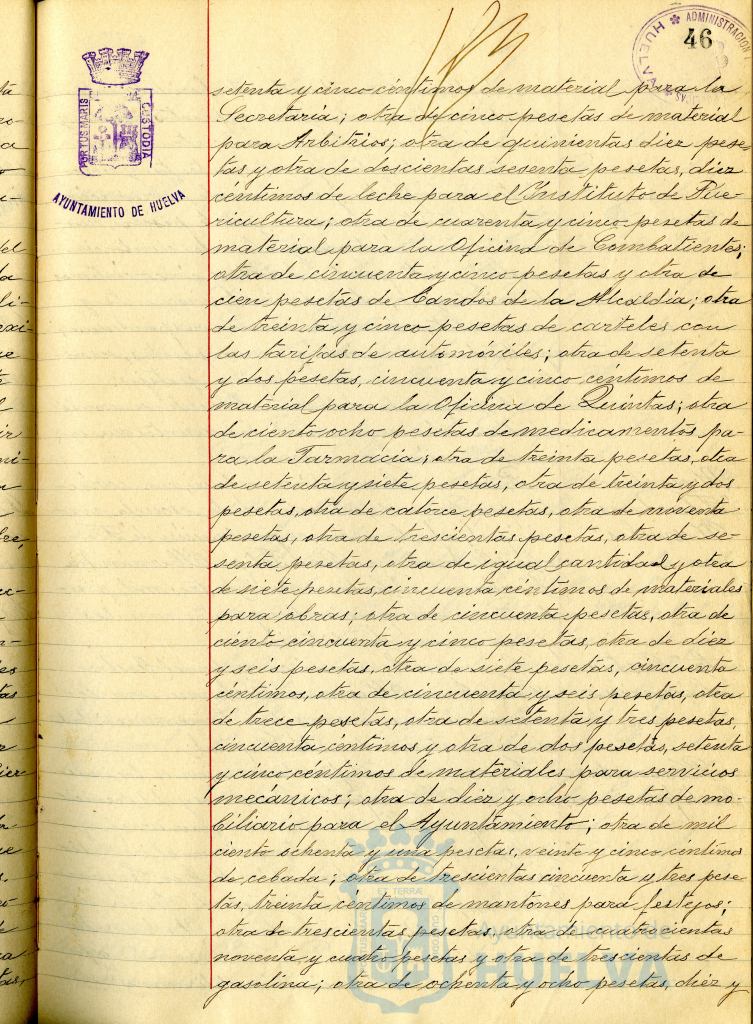 46
ADMINISTRACION
HUELVA
PORTUS MARIS
CUSTODIA
AYUNTAMIENTO DE HUELVA
setenta y cinco céntimos de material para la
Secretaria; otra de cinco pesetas de material
para Arbitrios; otra de quinientas diez pese-
tas y otra de doscientas sesenta pesetas, diez
céntimos de leche para el Instituto de Pue-
ricultura; otra de cuarenta y cinco pesetas de
material para la Oficina de Combatientes;
otra de cincuenta y cinco pesetas y otra de
cien pesetas de Bandos de la Alcaldia; otra
de treinta y cinco pesetas de carteles con
las tarifas de automóviles; otra de setenta
y dos pesetas, cincuenta y cinco céntimos de
material para la Oficina de Quintas; otra
de ciento ocho pesetas de medicamentos pa-
ra la Farmacia; otra de treinta pesetas, otra
de setenta y siete pesetas, otra de treinta y dos
pesetas, otra de catorce pesetas, otra de noventa
pesetas, otra de trescientas pesetas, otra de se-
senta pesetas, otra de igual cantidad y otra
de siete pesetas, cincuenta céntimos de materiales
para obras; otra de cincuenta pesetas, otra de
ciento cincuenta y cinco pesetas, otra de diez
y seis pesetas, otra de siete pesetas, cincuenta
céntimos, otra de cincuenta y seis pesetas, otra
de trece pesetas, otra de setenta y tres pesetas,
cincuenta céntimos y otra de dos pesetas, setenta
y cinco céntimos de materiales para servicios
mecánicos; otra de diez y ocho pesetas de mo-
biliario para el Ayuntamiento; otra de mil
ciento ochenta y una pesetas, veinte y cinco céntimos
de cebada; otra de trescientas cincuenta y tres pese-
tas, treinta céntimos de mantones para festejos;
otra de trescientas pesetas, otra de cuatrocientas
noventa y cuatro pesetas y otra de trescientas de
gasolina; otra de ochenta y ocho pesetas, diez y
Ayuntamiento de
HUELVA